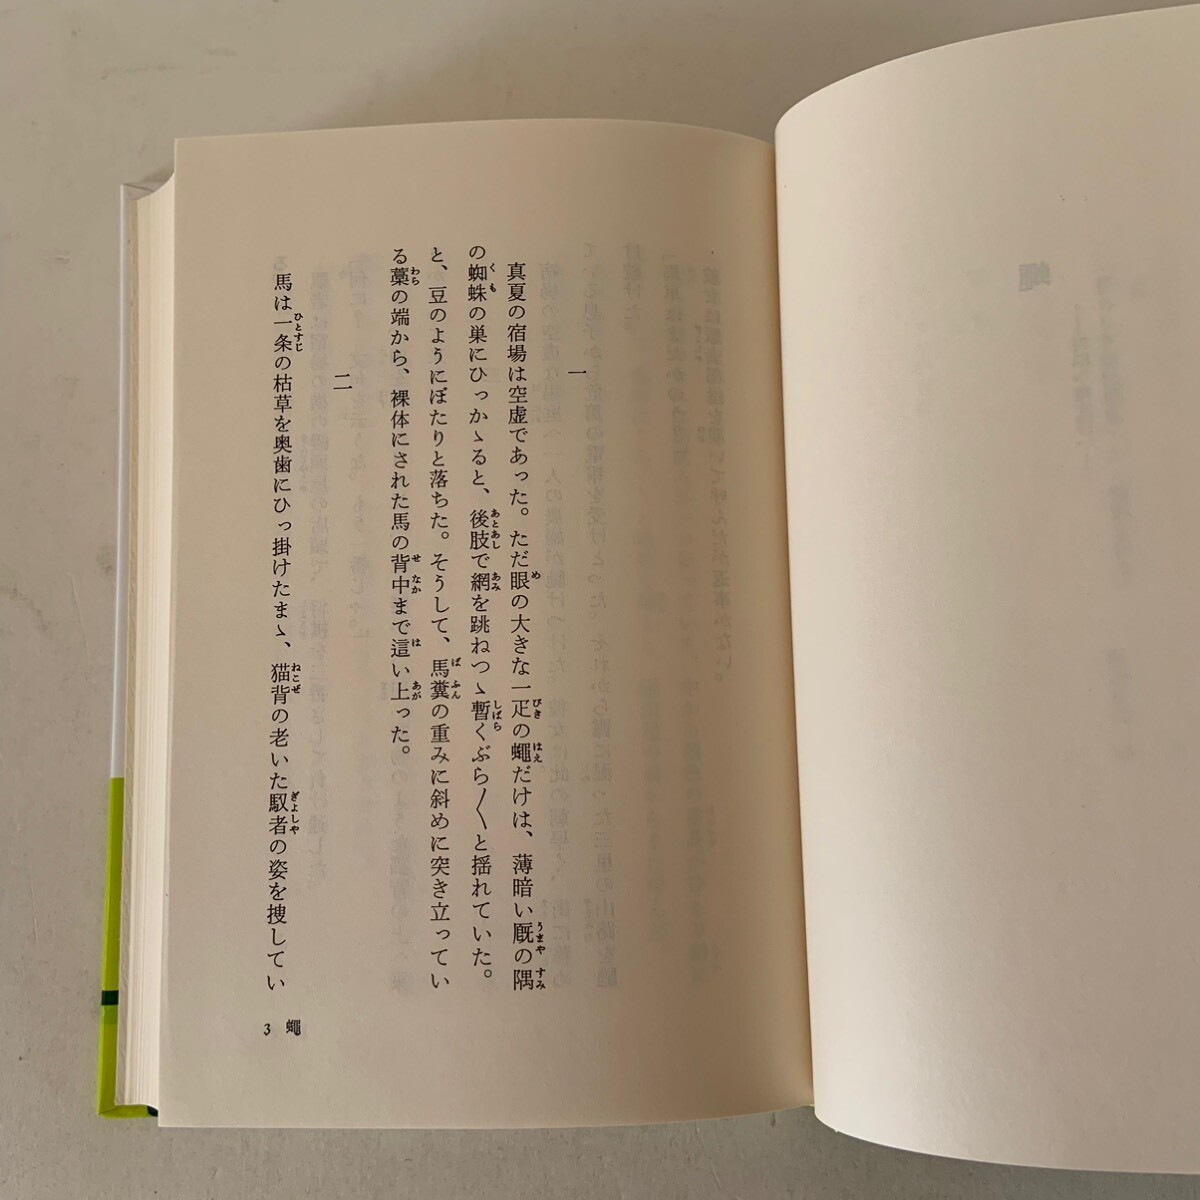 一
真夏の宿場は空虚であった。ただ眼の大きな一疋の蠅だけは、薄暗い厩の隅
の蜘蛛の巣にひっかゝると、後肢で網を跳ねつゝ暫くぶら〱と揺れていた。
と、豆のようにぽたりと落ちた。そうして、馬糞の重みに斜めに突き立ってい
る藁の端から、裸体にされた馬の背中まで這い上った。
二
馬は一条の枯草を奥歯にひっ掛けたまゝ、猫背の老いた馭者の姿を捜してい
3 蠅